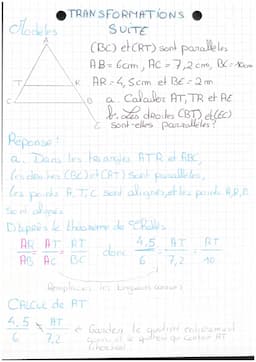 TRANSFORMATIONS
SUITE
Modèles
A
(BC) et (RT) sont parallèles
AB = 6cm, AC = 7,2cm, BC = 10cm
AR = 4,5cm et BE = 2m
T
R
C
B
E
a. Calculer AT, TR et AE
b. Les droites (BT) et (EC)
sont-elles parallèles ?
Réponse :
a. Dans les triangles ATR et ABC,
les droites (BC) et (RT) sont parallèles,
les points A, T, C sont alignés, et les points A, R, B
sont alignés
D'après le théorème de Thalès
AR AT RT
AB AC BC
donc 4,5 AT RT
6 7,2 10
Remplacer les longueurs connues
CALCUL DE AT
4,5 AT
6 7,2
Garder le quotient entièrement
connu et le quotient qui contient AT